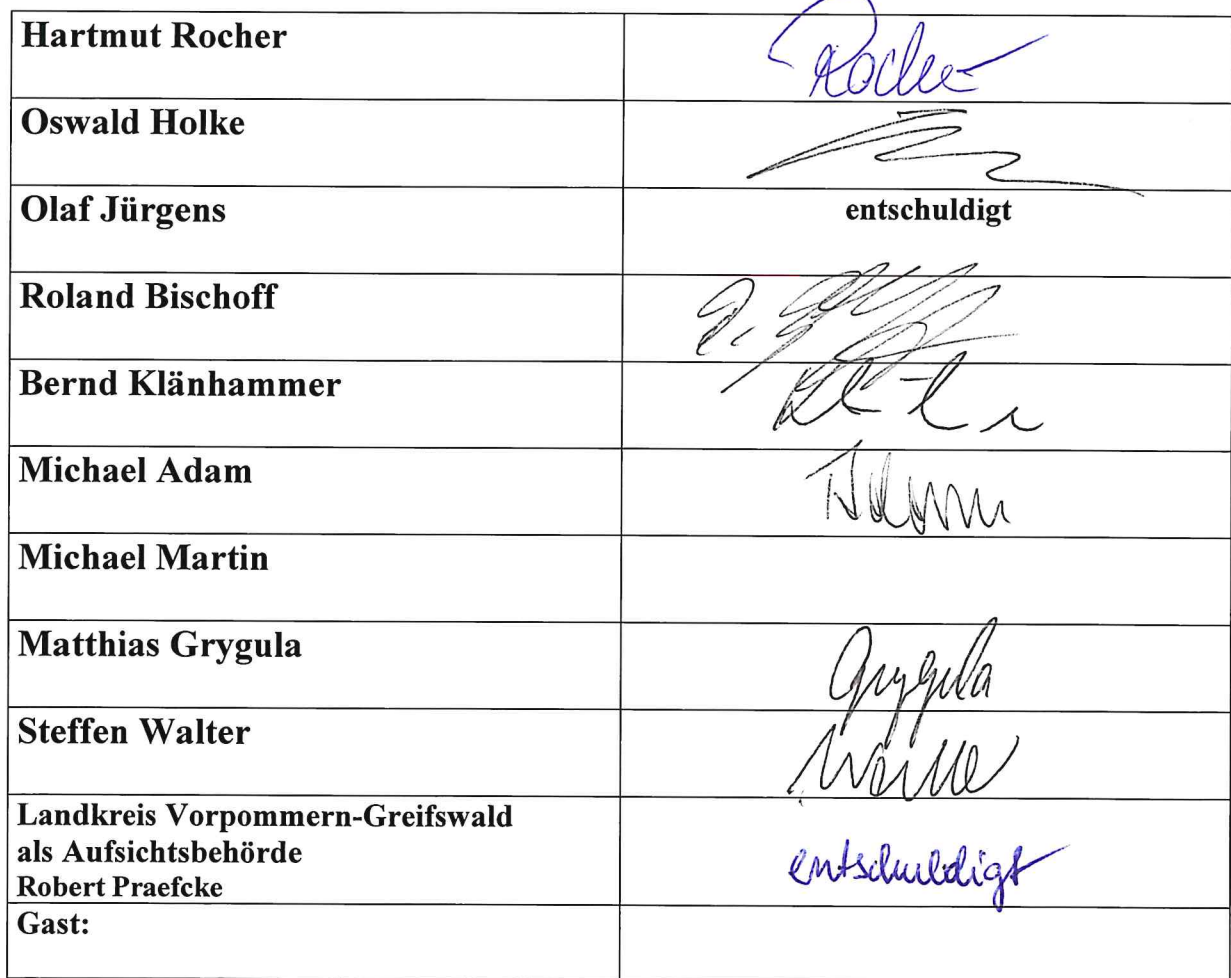 Hartmut Rocher
Rocher
Oswald Holke
Olaf Jürgens
entschuldigt
Roland Bischoff
Bernd Klänhammer
Michael Adam
Adam
Michael Martin
Matthias Grygula
Grygula
Steffen Walter
Landkreis Vorpommern-Greifswald
als Aufsichtsbehörde
Robert Praefcke
entschuldigt
Gast: